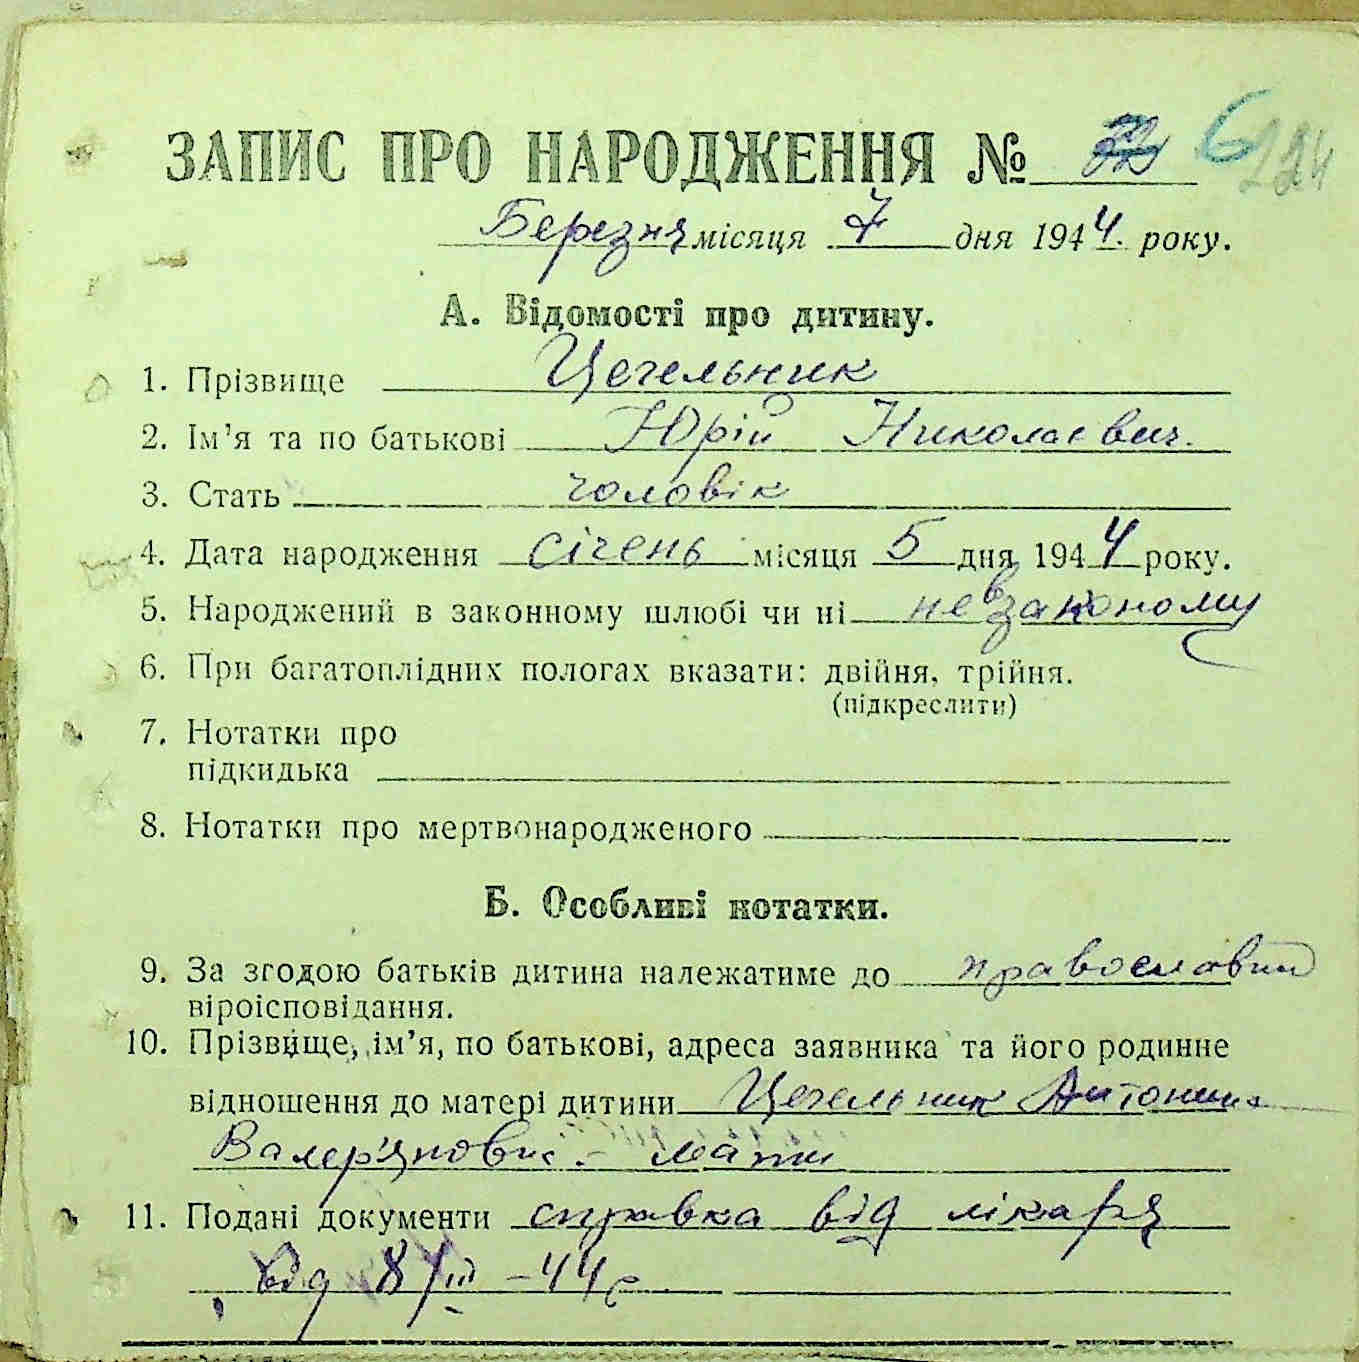 ЗАПИС ПРО НАРОДЖЕННЯ № 6 224
Березня місяця 7 дня 1944. року.
А. Відомості про дитину.
1. Прізвище Цегельник
2. Ім’я та по батькові Юрій Николаевич.
3. Стать чоловік
4. Дата народження січень місяця 5 дня 1944 року.
5. Народжений в законному шлюбі чи ні не в законому
6. При багатоплідних пологах вказати: двійня, трійня.
(підкреслити)
7. Нотатки про
підкидька
8. Нотатки про мертвонародженого
Б. Особливі нотатки.
9. За згодою батьків дитина належатиме до православний
віроісповідання.
10. Прізвище, ім’я, по батькові, адреса заявника та його родинне
відношення до матері дитини Цегельник Антонина
Валер'яновна - мати
11. Подані документи справка від лікаря
від 8/III - 44 г